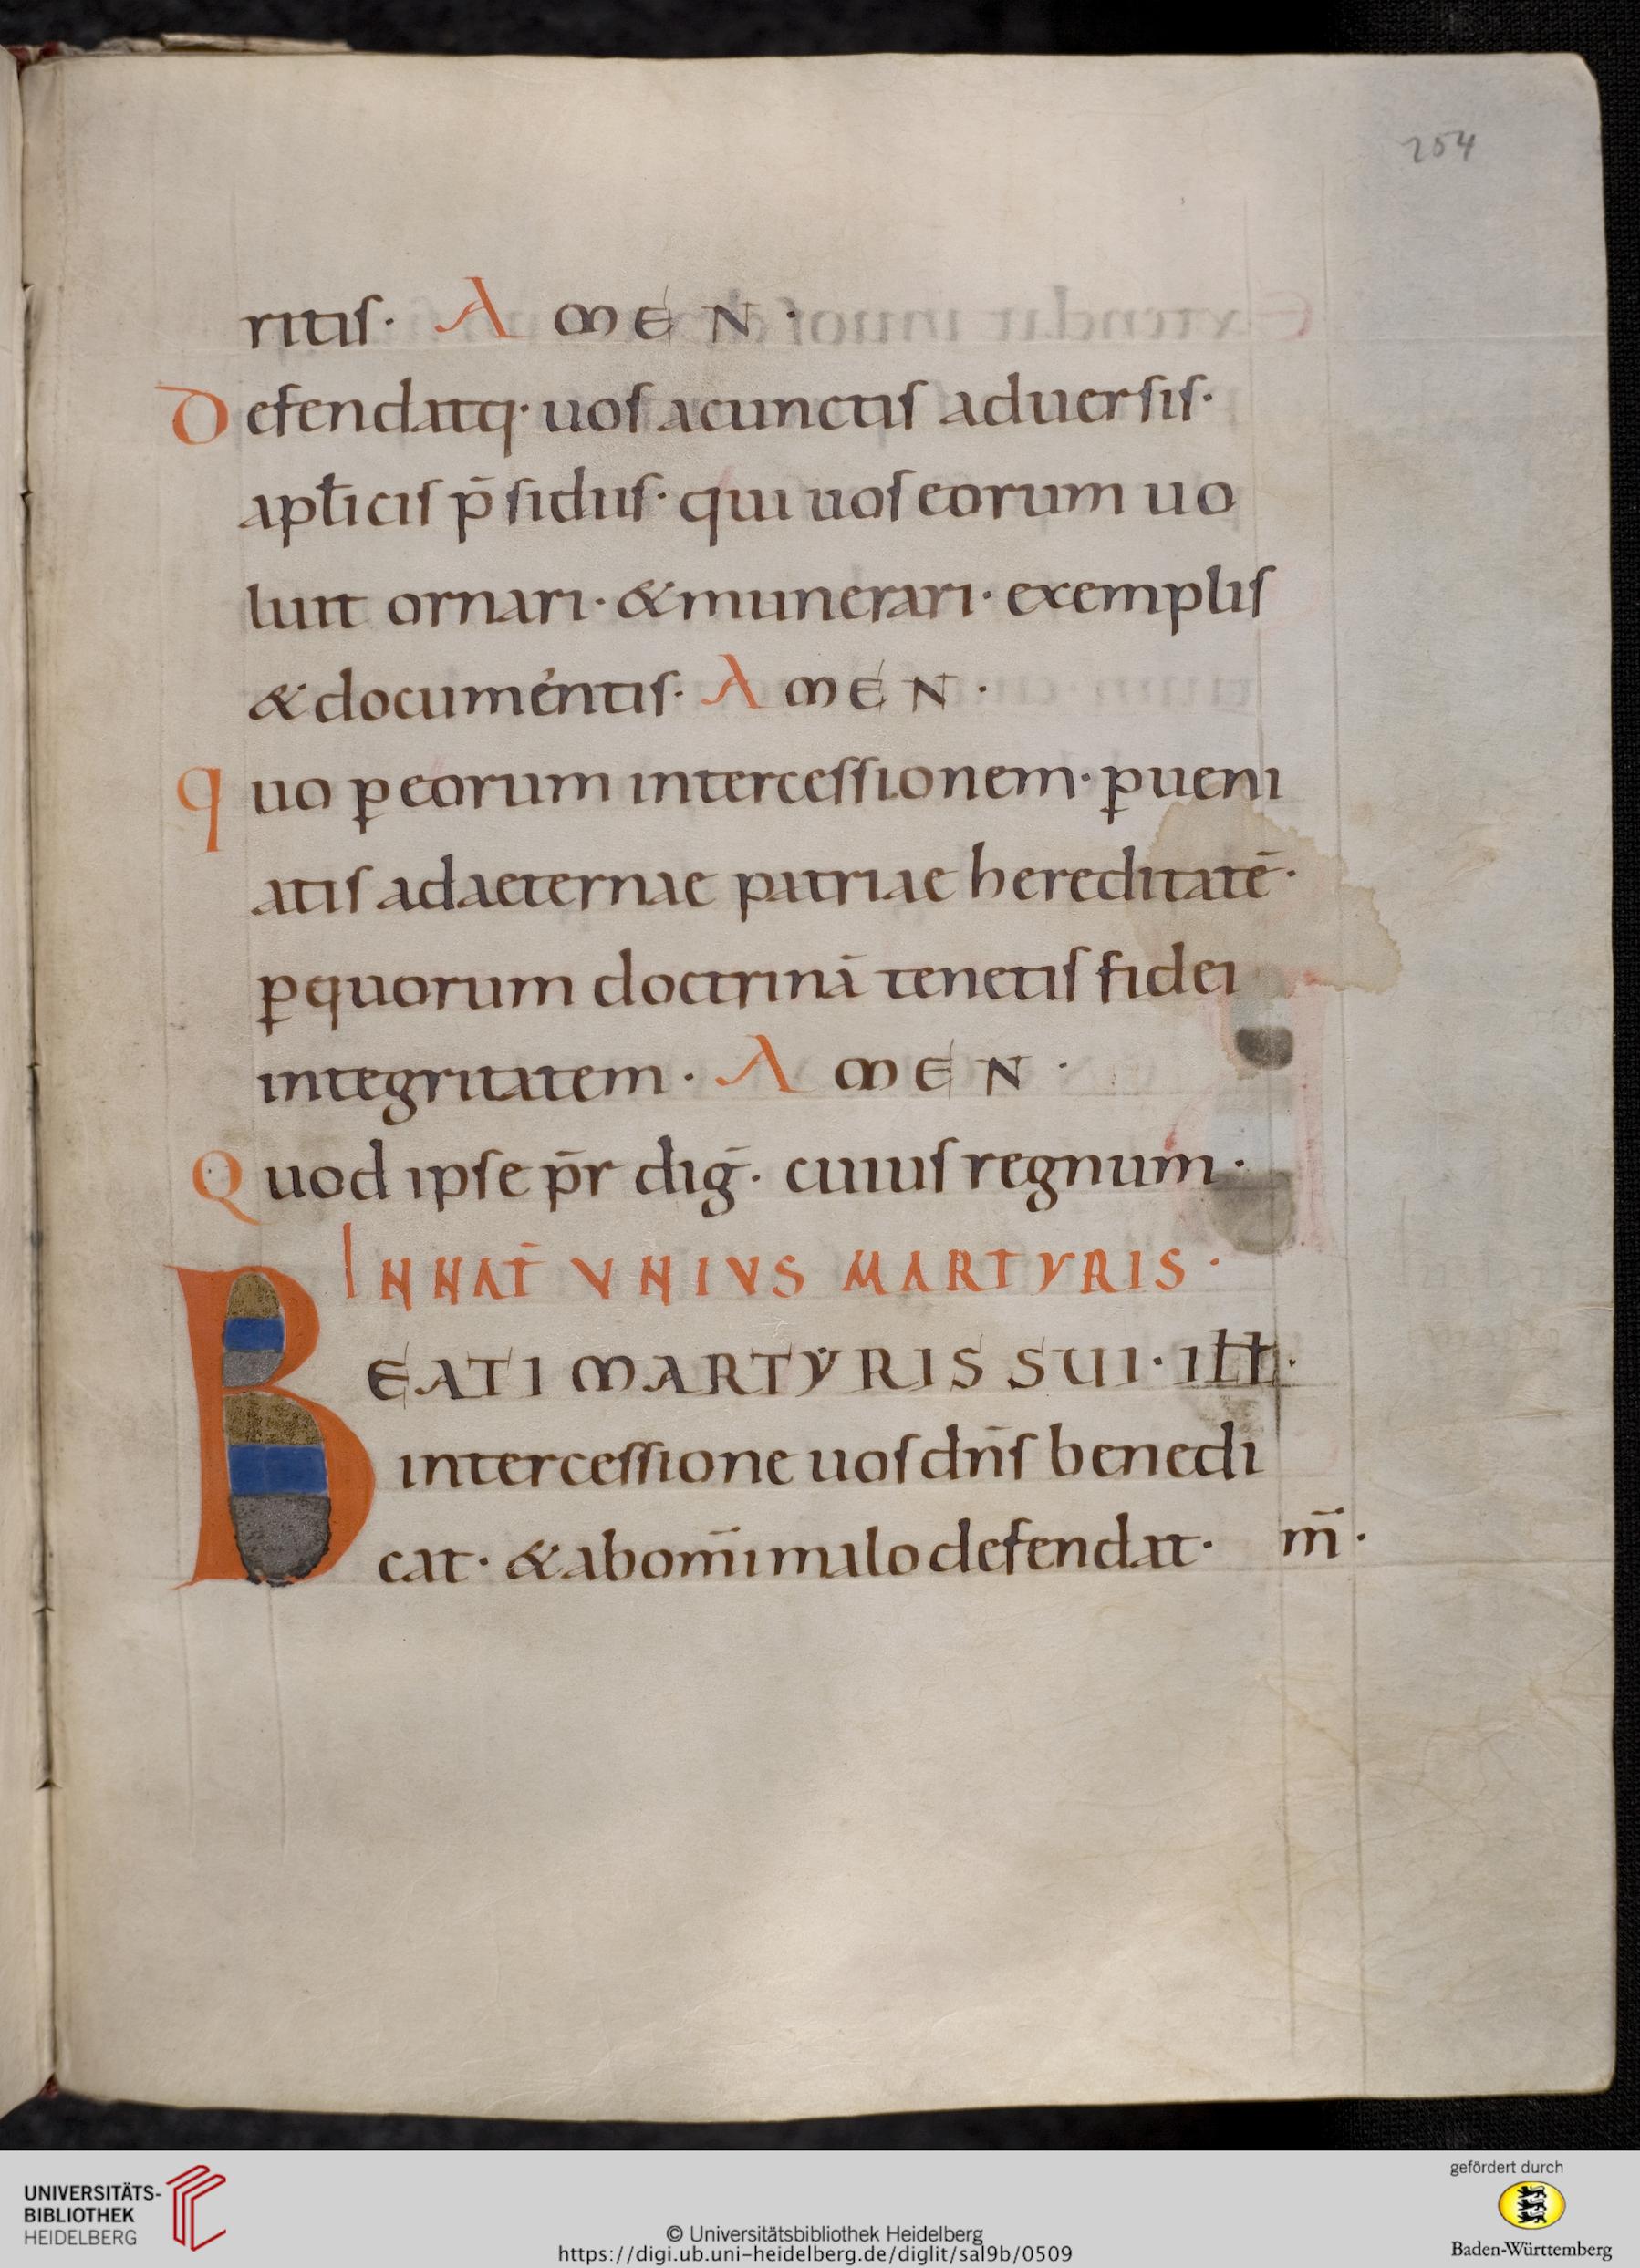 254
ritis· AMEN·
Defendatq· uos acunctis aduersis·
apƚicis p̄sidiis· qui uos eorum uo
luit ornari· &munerari· exemplis
&documéntis· AMEN·
quo ꝑeorum intercessionem· ꝑueni
atis adaeternae patriae hereditatē·
ꝑquorum doctrinā tenetis fidei
integritatem· AMEN·
Quod ipse p̄r diḡ· cuius regnum·
INNAT̄ VNIVS MARTYRIS·
BEATI MARTẎRIS SUI· iƚƚ·
intercessione uos dn̄s benedi
cat· &abom̄i malo defendat· m̄·
UNIVERSITÄTS-
BIBLIOTHEK
HEIDELBERG
© Universitätsbibliothek Heidelberg
https://digi.ub.uni-heidelberg.de/diglit/sal9b/0509
gefördert durch
Baden-Württemberg